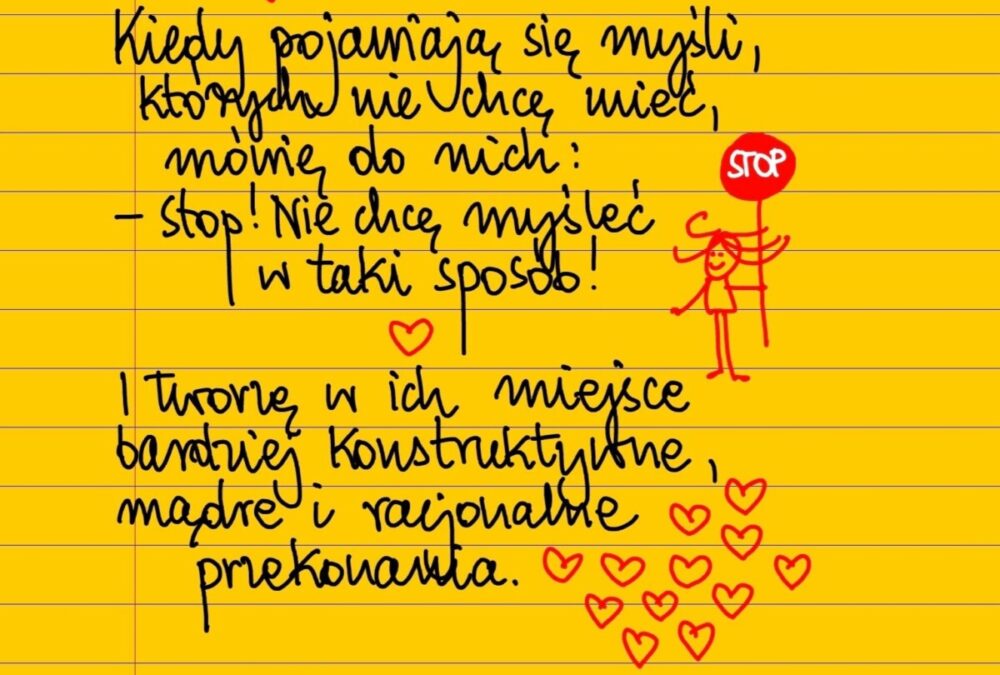 Kiedy pojawiają się myśli,
których nie chcę mieć,
mówię do nich:
STOP
- Stop! Nie chcę myśleć
w taki sposób!
I tworzę w ich miejsce
bardziej konstruktywne,
mądre i racjonalne
przekonania.